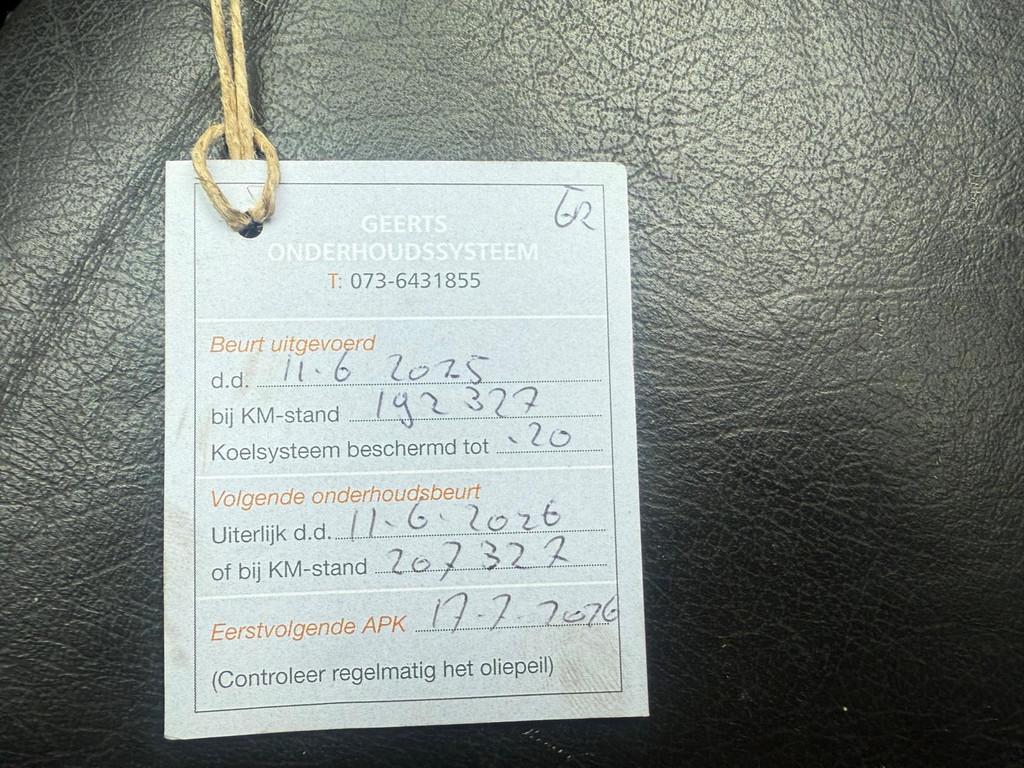 GR
GEERTS
ONDERHOUDSSYSTEEM
T: 073-6431855
Beurt uitgevoerd
d.d. 11.6 2025
bij KM-stand 192 327
Koelsysteem beschermd tot -20
Volgende onderhoudsbeurt
Uiterlijk d.d. 11.6.2026
of bij KM-stand 207 327
Eerstvolgende APK 17-7-2026
(Controleer regelmatig het oliepeil)